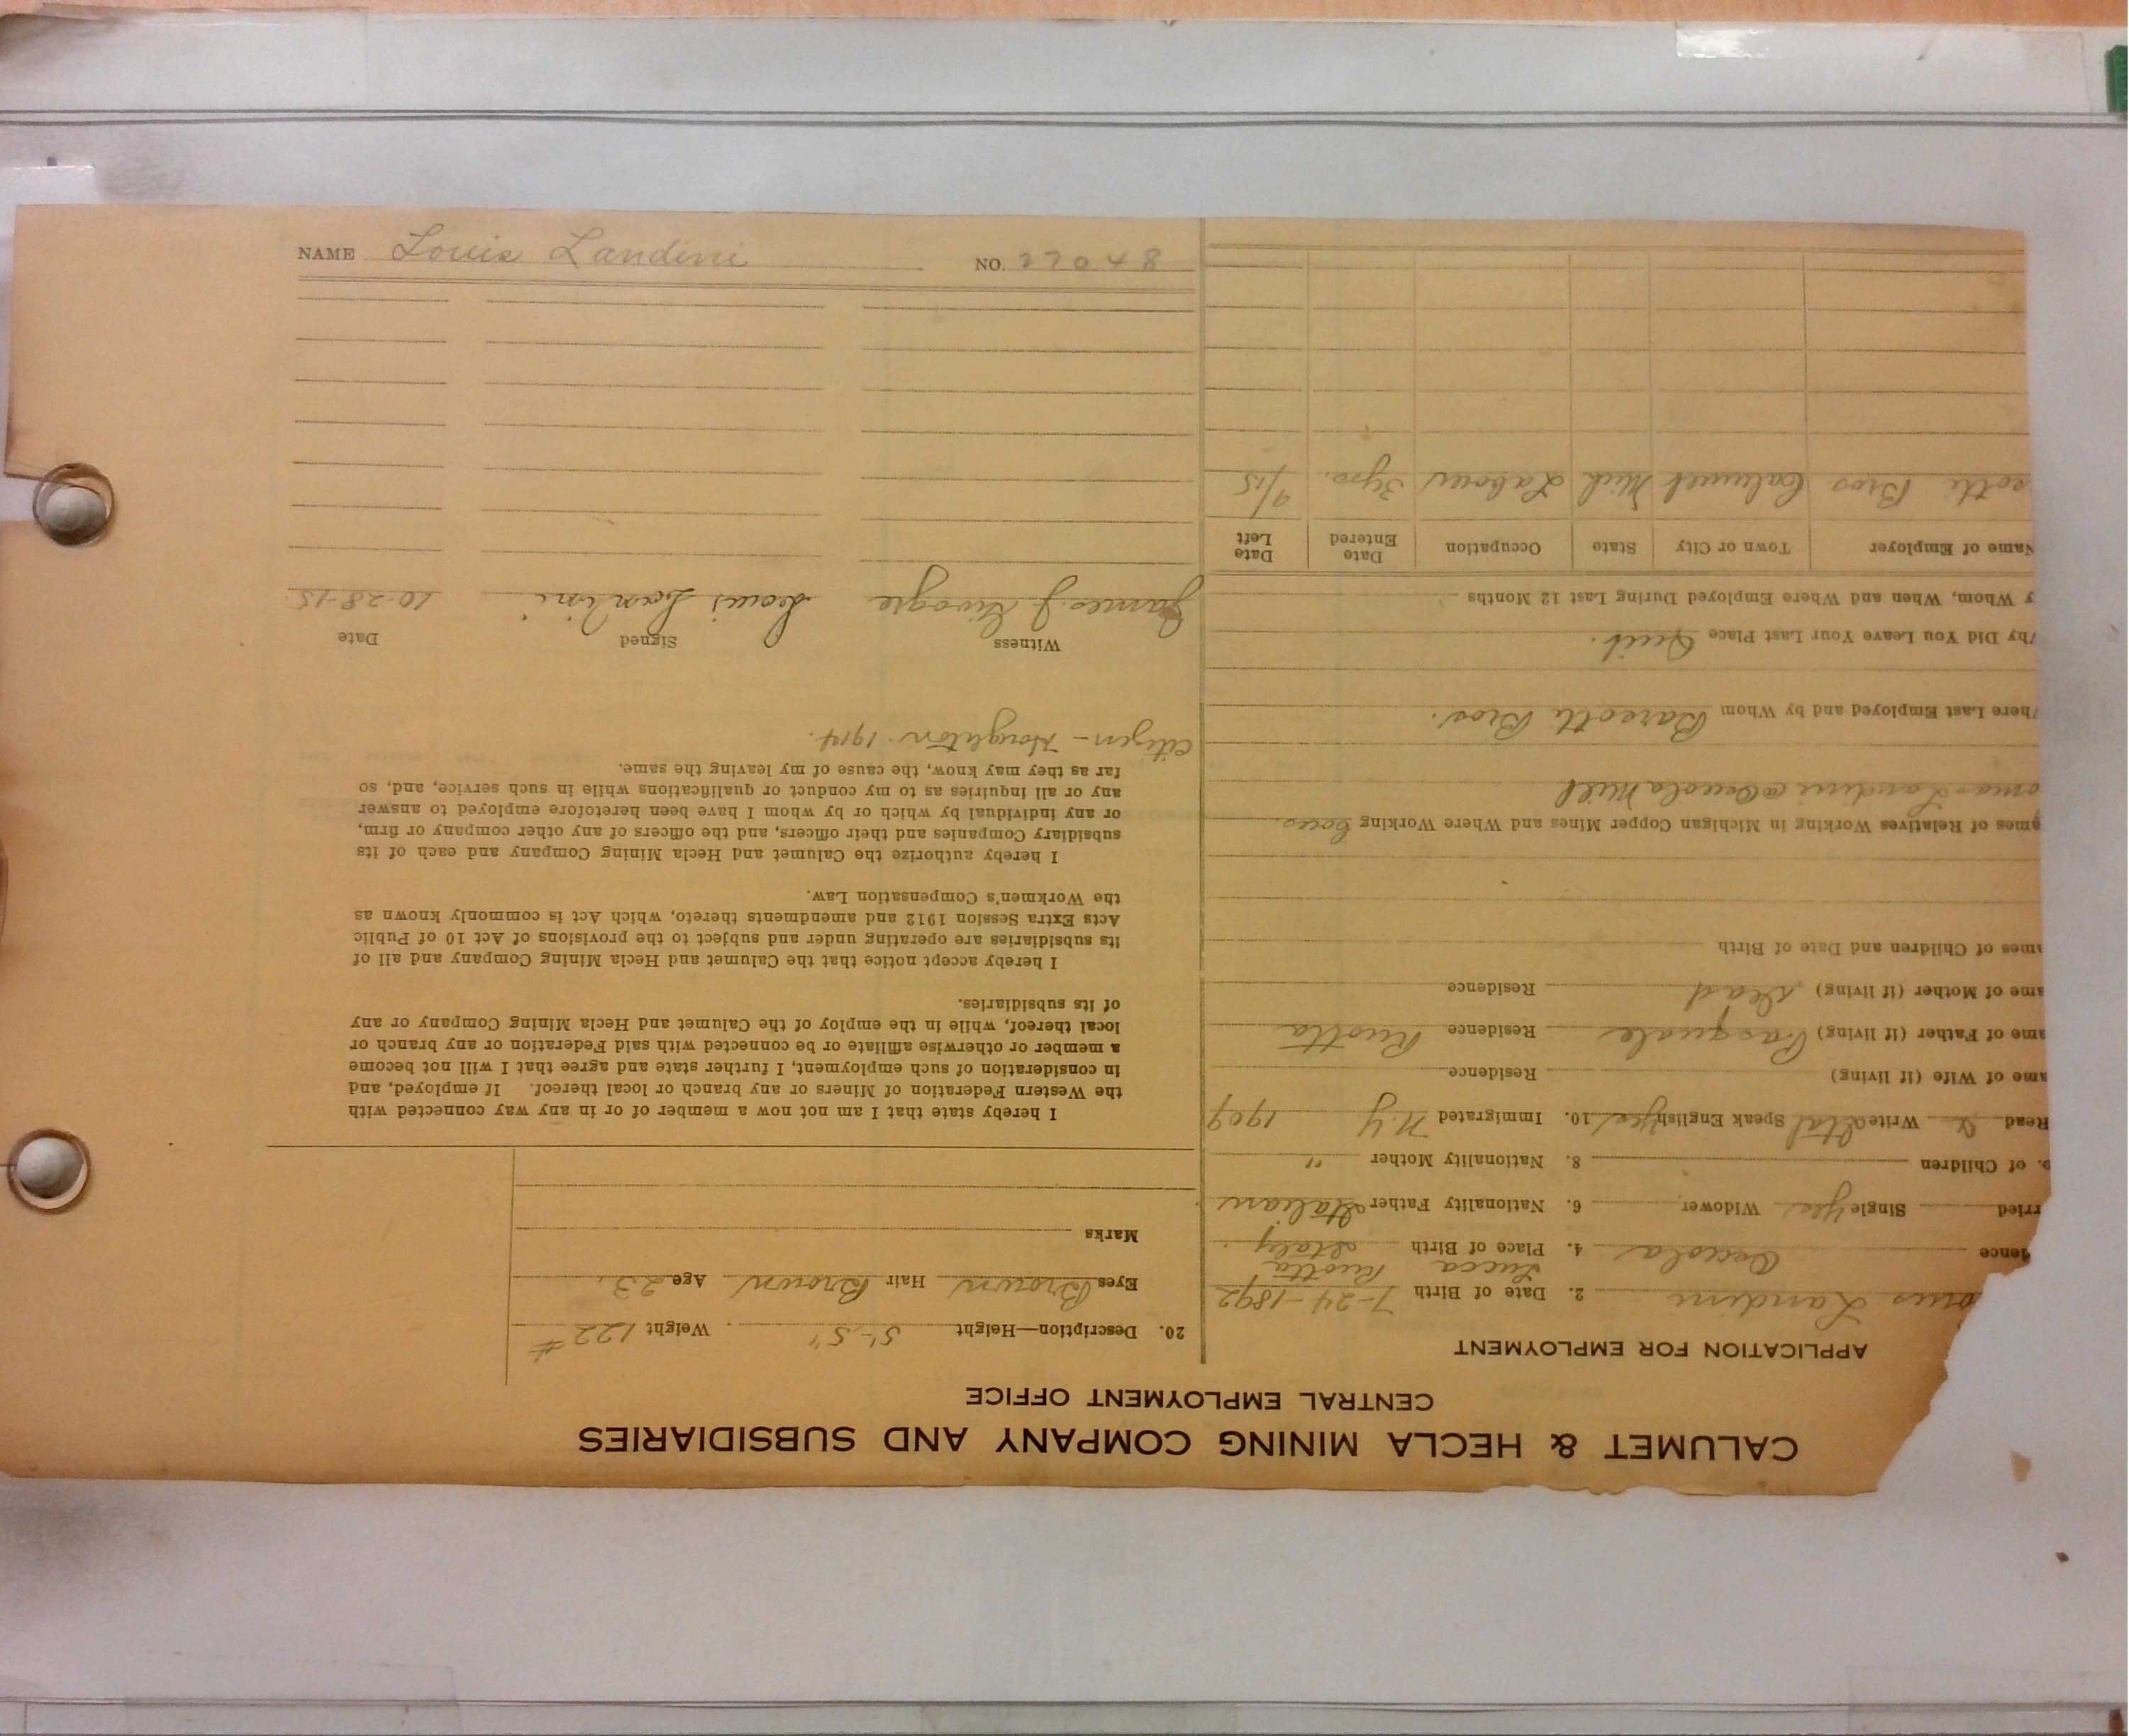 CALUMET & HECLA MINING COMPANY AND SUBSIDIARIES
CENTRAL EMPLOYMENT OFFICE
APPLICATION FOR EMPLOYMENT
ouis Landini 2. Date of Birth 7-24-1892
dence Osceola 4. Place of Birth Lucca Italy.
rried Single Yes Widower 6. Nationality Father Italian
o. of Children 8. Nationality Mother "
Read & Write Ital Speak English Yes 10. Immigrated N.Y 1909
ame of Wife (if living) Residence
ame of Father (if living) Pasquale Residence
ame of Mother (if living) Dead Residence
ames of Children and Date of Birth
ames of Relatives Working in Michigan Copper Mines and Where Working
Landini @ Osceola Mill
here Last Employed and by Whom Barcotti Bros.
hy Did You Leave Your Last Place Quit.
y Whom, When and Where Employed During Last 12 Months
Name of Employer Town or City State Occupation Date Entered Date Left
cotti Bros Calumet Mich Labour 3 yrs. 9/15
20. Description—Height 5'-5" Weight 122 #
Eyes Brown Hair Brown Age 23.
Marks
I hereby state that I am not now a member of or in any way connected with
the Western Federation of Miners or any branch or local thereof. If employed, and
in consideration of such employment, I further state and agree that I will not become
a member or otherwise affiliate or be connected with said Federation or any branch or
local thereof, while in the employ of the Calumet and Hecla Mining Company or any
of its subsidiaries.
I hereby accept notice that the Calumet and Hecla Mining Company and all of
its subsidiaries are operating under and subject to the provisions of Act 10 of Public
Acts Extra Session 1912 and amendments thereto, which Act is commonly known as
the Workmen's Compensation Law.
I hereby authorize the Calumet and Hecla Mining Company and each of its
subsidiary Companies and their officers, and the officers of any other company or firm,
or any individual by which or by whom I have been heretofore employed to answer
any or all inquiries as to my conduct or qualifications while in such service, and, so
far as they may know, the cause of my leaving the same.
Citizen - Houghton. 1914.
Witness Signed Date
James J. Louis Landini 10-28-15
NAME Louis Landini NO. 27048